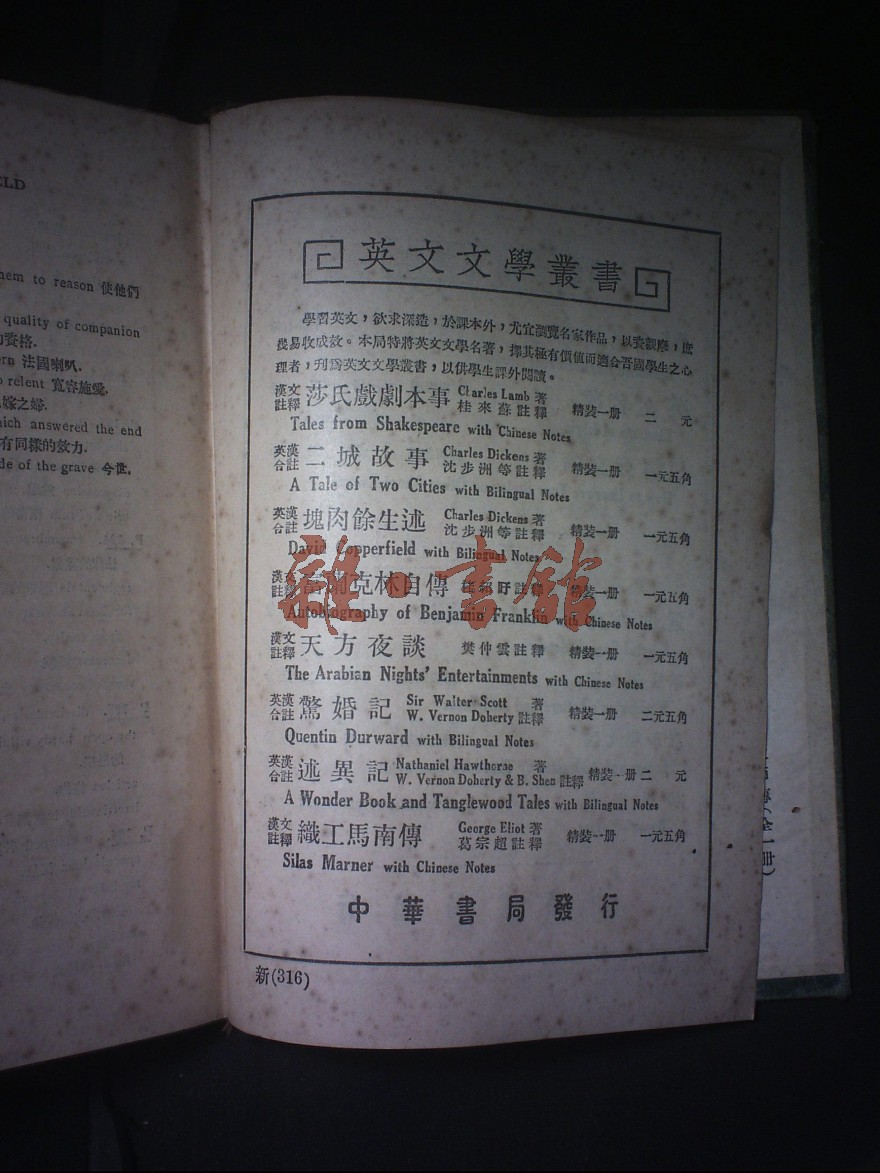 ELD
hem to reason 使他們
quality of companion
的資格.
rn 法國喇叭.
o relent 寬容施愛.
嫁之婦.
hich answered the end
有同樣的效力.
de of the grave 今世,
英文文學叢書
學習英文，欲求深造，於課本外，尤宜瀏覽名家作品，以資觀摩，庶
幾易收成效。本局特將英文文學名著，擇其極有價值而適合吾國學生之心
理者，刊爲英文文學叢書，以供學生課外閱讀。
漢文註釋 莎氏戲劇本事 Charles Lamb 著 桂來蘇註釋 精裝一册 二元
Tales from Shakespeare with Chinese Notes
英漢合註 二城故事 Charles Dickens 著 沈步洲等註釋 精裝一册 一元五角
A Tale of Two Cities with Bilingual Notes
英漢合註 塊肉餘生述 Charles Dickens 著 沈步洲等註釋 精裝一册 一元五角
David Copperfield with Bilingual Notes
漢文註釋 富蘭克林自傳 註釋 精裝一册 一元五角
Autobiography of Benjamin Franklin with Chinese Notes
漢文註釋 天方夜談 樊仲雲註釋 精裝一册 一元五角
The Arabian Nights' Entertainments with Chinese Notes
英漢合註 驚婚記 Sir Walter Scott 著 W. Vernon Doherty 註釋 精裝一册 二元五角
Quentin Durward with Bilingual Notes
英漢合註 述異記 Nathaniel Hawthorne 著 W. Vernon Doherty & B. Shen 註釋 精裝一册 二元
A Wonder Book and Tanglewood Tales with Bilingual Notes
漢文註釋 織工馬南傳 George Eliot 著 葛宗超註釋 精裝一册 一元五角
Silas Marner with Chinese Notes
中華書局發行
新(316)
雜·書館
(全一册)